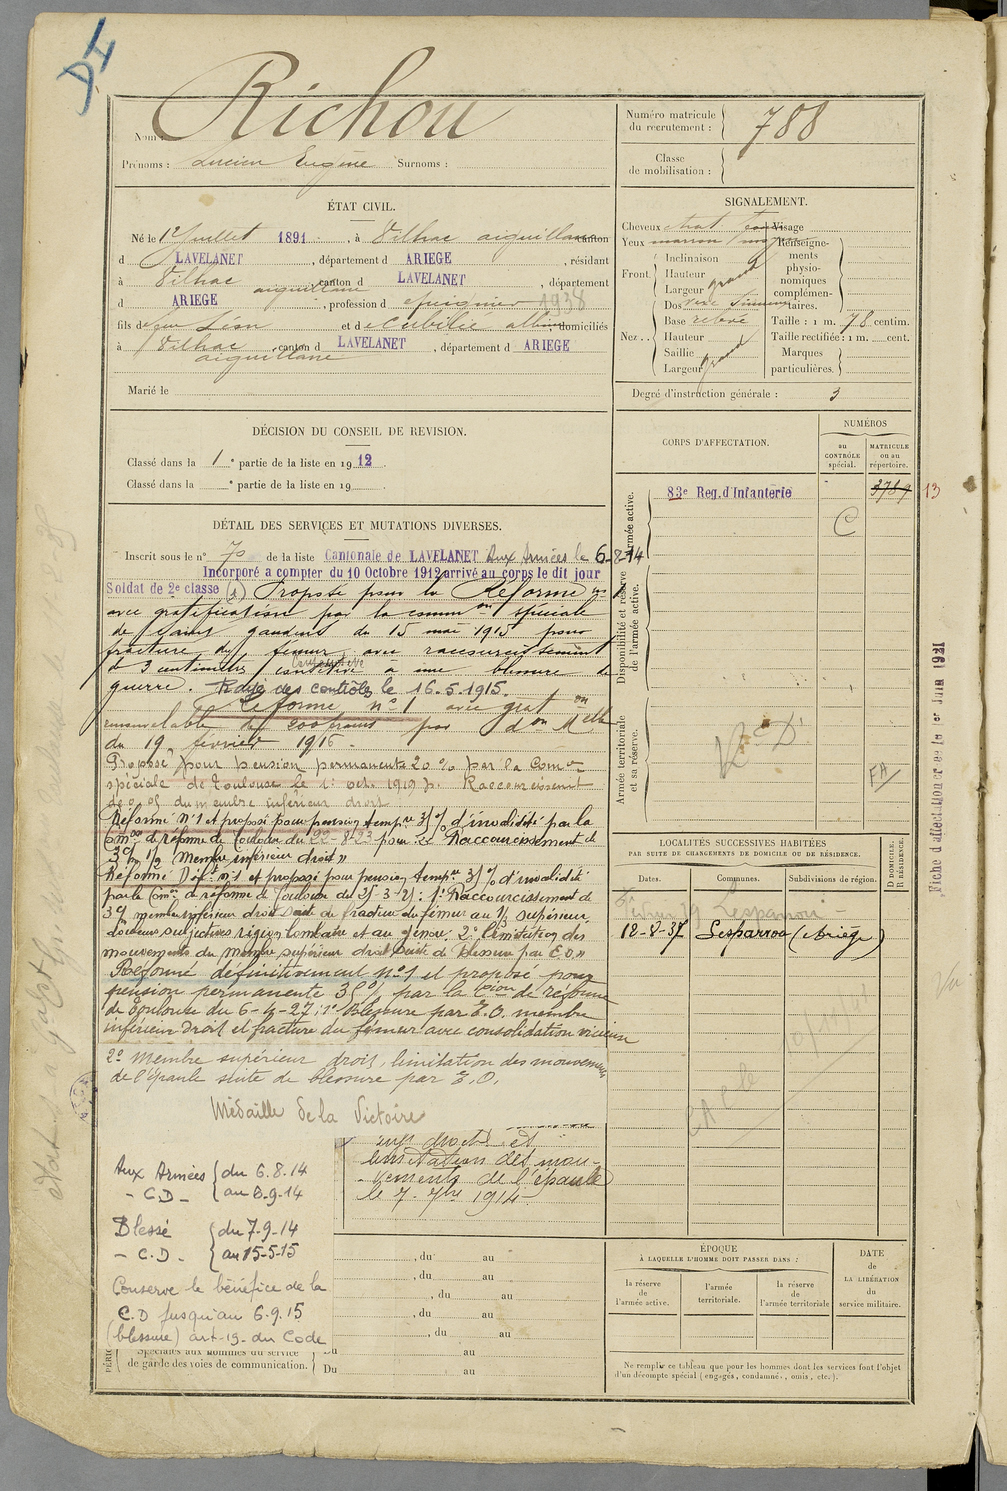 DI
Nom : Richou
Prénoms : Lucien Eugène Surnoms :
Numéro matricule du recrutement : 788
Classe de mobilisation :
ÉTAT CIVIL.
Né le 12 Juillet 1891, à Vilhac aiguillane canton
d LAVELANET, département d ARIEGE, résidant
à Vilhac aiguillane canton d LAVELANET, département
d ARIEGE, profession d 1938
fils de feu Léon et de domiciliés
à Vilhac aiguillane, canton d LAVELANET, département d ARIEGE
Marié le
SIGNALEMENT.
Cheveux chat
Yeux marron
Front. Inclinaison
Hauteur
Largeur grand
Dos
Nez . . Base relevé
Hauteur
Saillie
Largeur grand
Visage
Renseignements physionomiques complémentaires.
Taille : 1 m. 78 centim.
Taille rectifiée : 1 m. cent.
Marques particulières.
Degré d'instruction générale : 3
DÉCISION DU CONSEIL DE REVISION.
Classé dans la 1e partie de la liste en 1912.
Classé dans la e partie de la liste en 19 .
CORPS D'AFFECTATION.
NUMÉROS
au CONTRÔLE spécial.
MATRICULE ou au répertoire.
Armée active.
83e Reg. d'Infanterie
3789 13
C
Disponibilité et réserve de l'armée active.
Armée territoriale et sa réserve.
FA
DÉTAIL DES SERVICES ET MUTATIONS DIVERSES.
Inscrit sous le n° 70 de la liste Cantonale de LAVELANET Aux Armées le 6-8-14
Incorporé à compter du 10 Octobre 1912 arrivé au corps le dit jour
Soldat de 2e classe (1) Proposé pour la Réforme n° 1
avec gratification par la common spéciale
de Saint gaudens du 15 mai 1915 pour
fracture du fémur avec raccourcissement
d 3 centimètres consécutive à une blessure de
guerre. Rayé des contrôles le 16.5.1915.
Réforme n° 1 avec grat on
renouvelable de 200 francs par don Melle
du 19 février 1916.
Proposé pour pension permanente 20 % par la Comon
spéciale de Toulouse le 1: oct. 1919 p. Raccourcissement
du membre inférieur droit
Réformé N° 1 et proposé pour pension tempre 35 % d'invalidité par la
Comon de réforme de Toulouse du 22-8-23 pour : Raccourcissement de
3 c/m 1/2 Membre inférieur droit"
Réformé Déf. n° 1 et proposé pour pension tempre 35 % d'invalidité
par la Comon de réforme de Toulouse du 25-3-25: 1° Raccourcissement de
3 c/m membre inférieur droit suite de fracture du fémur au 1/3 supérieur
douleurs subjectives région lombaire et au genou. 2° limitation des
mouvements du Membre supérieur droit suite de blessure par E.O."
Réformé définitivement n° 1 et proposé pour
pension permanente 35 % par la Cion de réforme
de Toulouse du 6-4-27: 1° Blessure par E.O. membre
inférieur droit et fracture du fémur avec consolidation vicieuse
2° Membre supérieur droit, limitation des mouvements
de l'épaule suite de blessure par E.O.
Médaille de la Victoire
sup. droit et
limitation des mou-
-vements de l'épaule
le 7 7bre 1914
Aux Armées du 6.8.14
- C.D - au 8-9-14
Blessé du 7-9-14
- C.D. - au 15-5-15
Conserve le bénéfice de la
C.D jusqu'au 6.9.15
(blessure) art-19-du Code
Spéciales aux hommes du service
de garde des voies de communication.
, du au
, du au
, du au
, du au
, du au
Du au
Du au
LOCALITÉS SUCCESSIVES HABITÉES
PAR SUITE DE CHANGEMENTS DE DOMICILE OU DE RÉSIDENCE.
Dates. Communes. Subdivisions de région. D DOMICILE. R RÉSIDENCE.
Février 19 Lesparrou -
12-2-37 Lesparrou (Ariège)
ÉPOQUE
À LAQUELLE L'HOMME DOIT PASSER DANS :
la réserve de l'armée active.
l'armée territoriale.
la réserve de l'armée territoriale
DATE de LA LIBÉRATION du service militaire.
Ne remplir ce tableau que pour les hommes dont les services font l'objet
d'un décompte spécial (engagés, condamnés, omis, etc.).
Fiche d'affectation er de le 1er Juin 1921